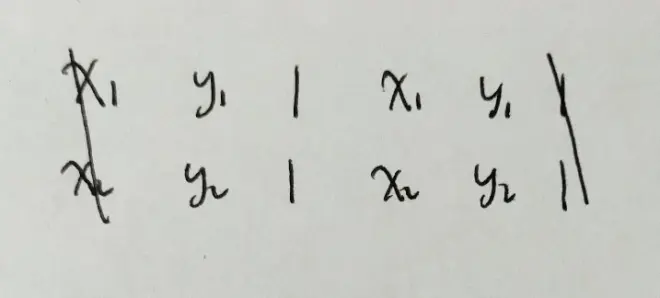 x₁ y₁ 1 x₁ y₁ 1
x₂ y₂ 1 x₂ y₂ 1